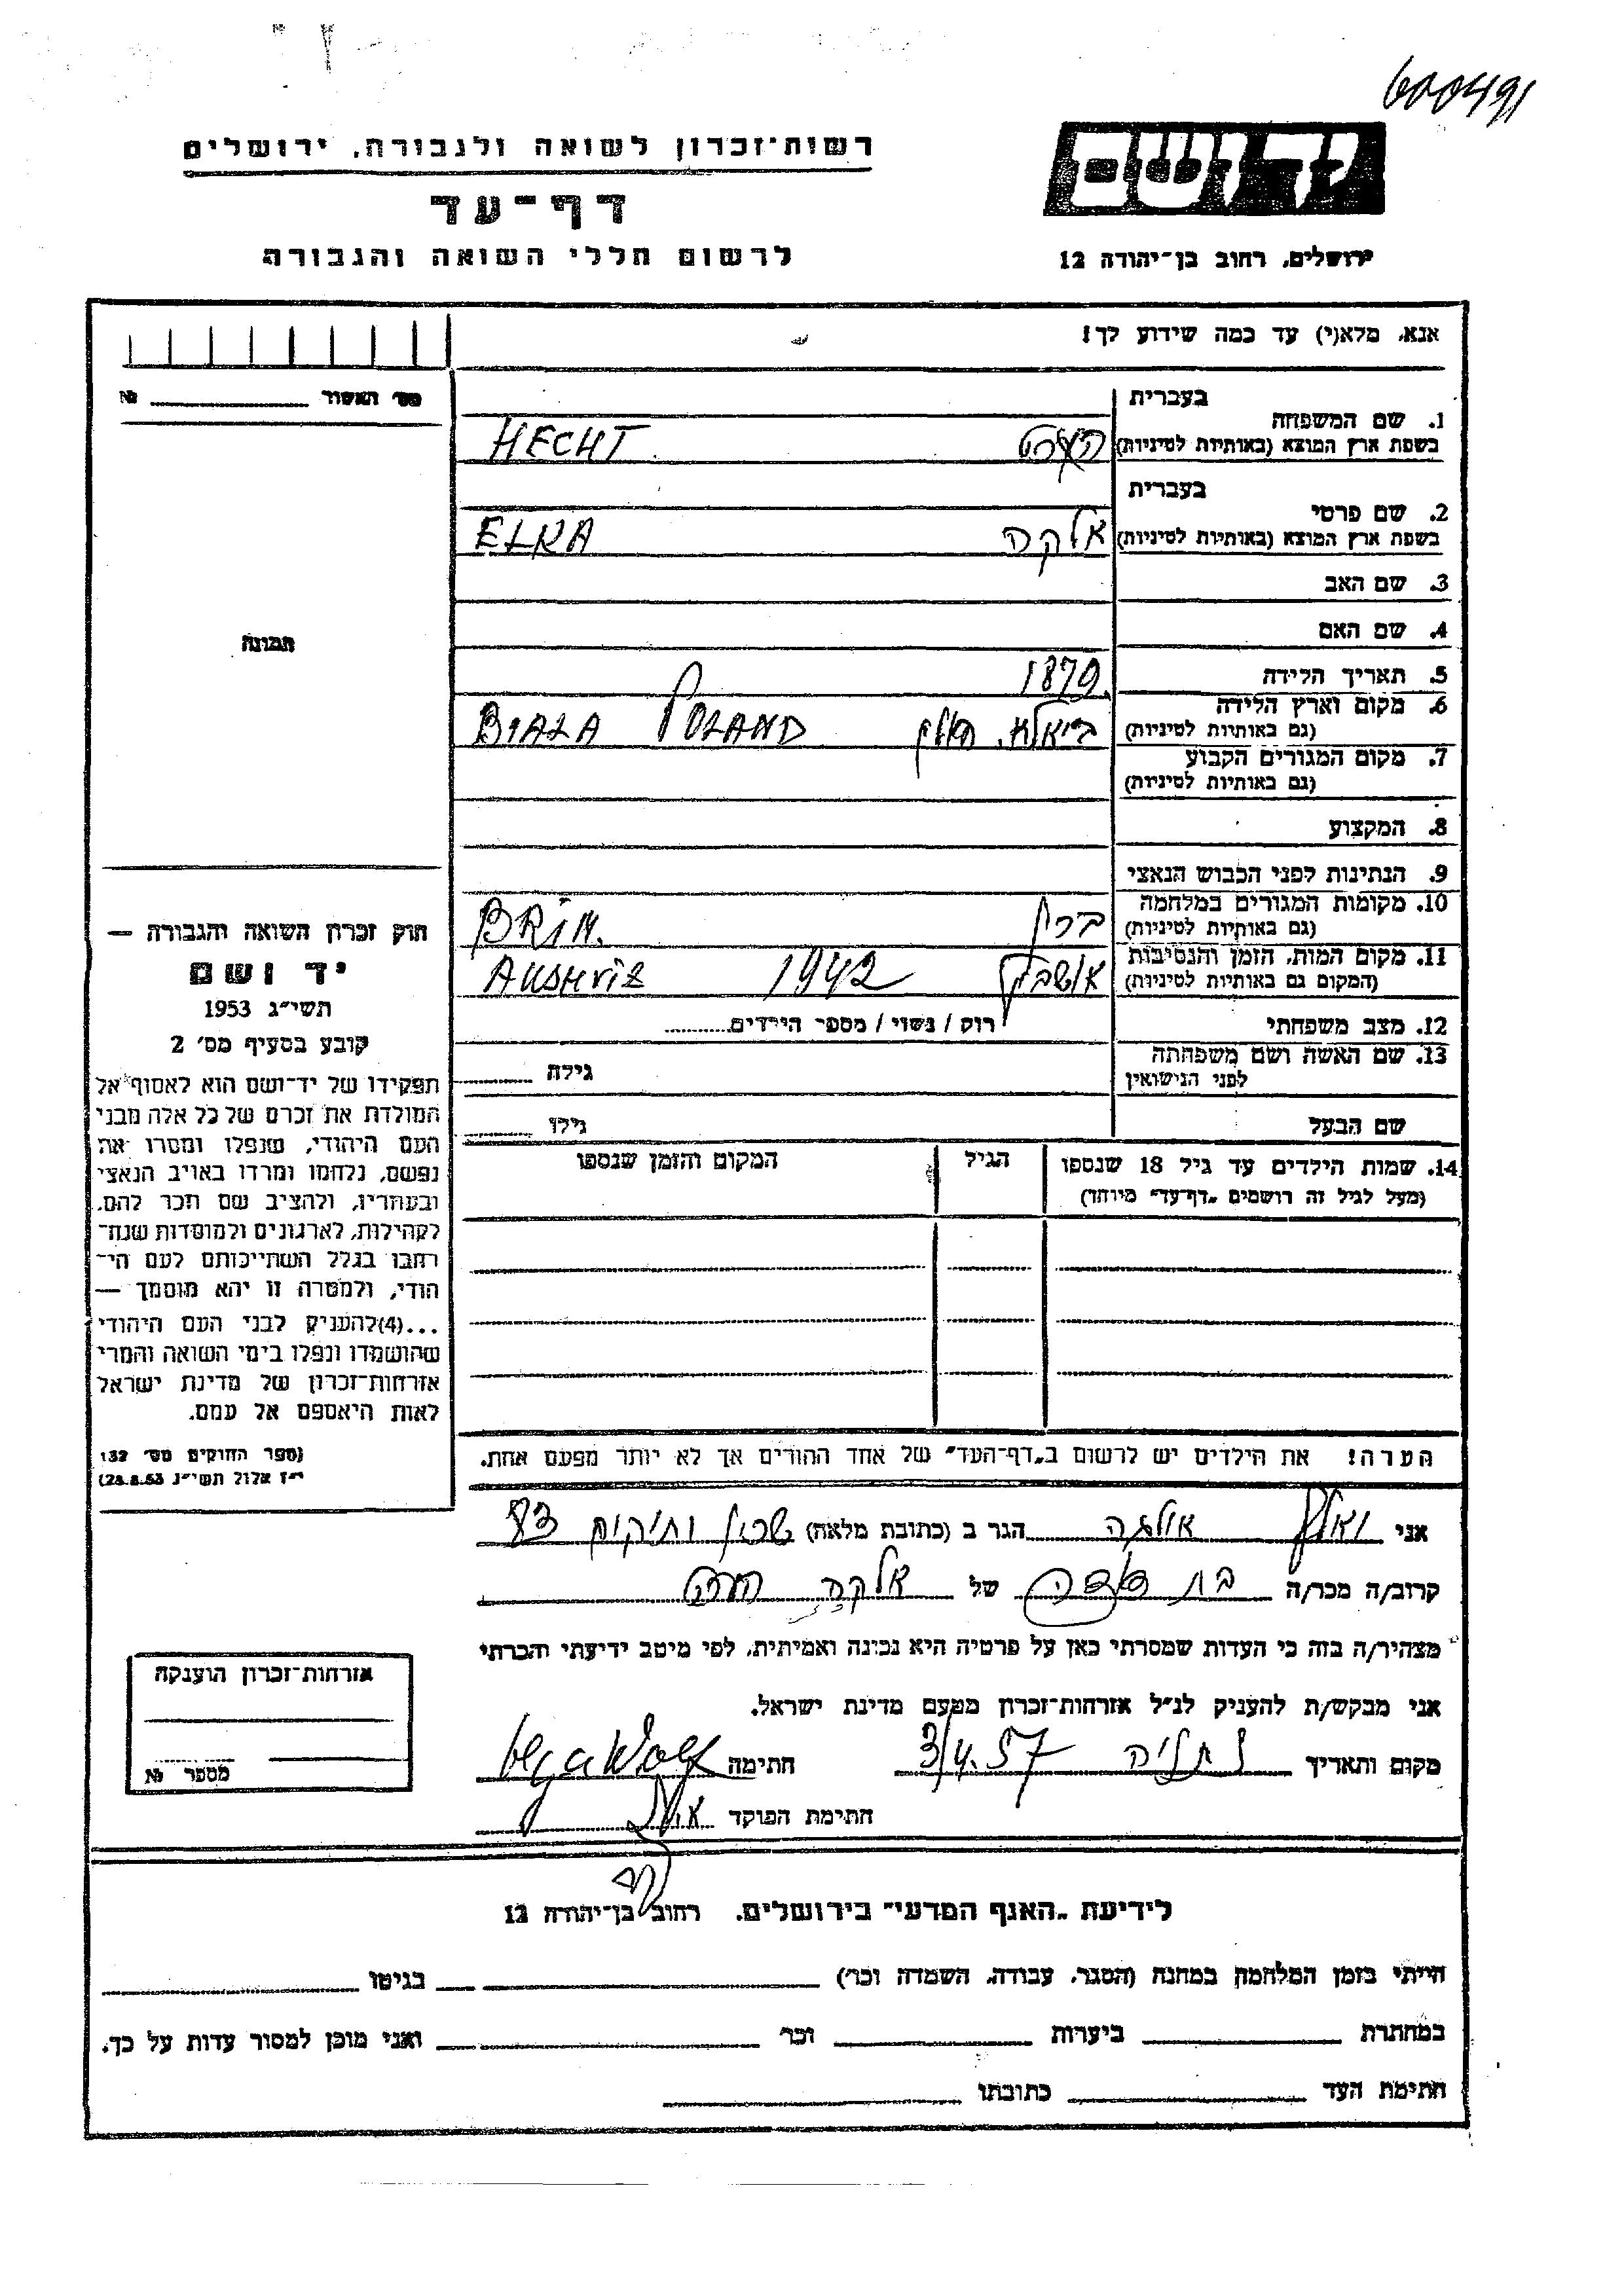 600491
רשות־זכרון לשואה ולגבורה, ירושלים
דף־עד
לרשום חללי השואה והגבורה
יד ושם
ירושלים, רחוב בן־יהודה 12
אנא, מלא(י) עד כמה שידוע לך!
מס׳ האשור №
תמונה
1. שם המשפחה בעברית
בשפת ארץ המוצא (באותיות לטיניות) HECHT
2. שם פרטי בעברית
בשפת ארץ המוצא (באותיות לטיניות) אלקה ELKA
3. שם האב
4. שם האם
5. תאריך הלידה 1879
6. מקום וארץ הלידה
(גם באותיות לטיניות) ביאלא. פולין BIAŁA POLAND
7. מקום המגורים הקבוע
(גם באותיות לטיניות)
8. המקצוע
9. הנתינות לפני הכבוש הנאצי
10. מקומות המגורים במלחמה
(גם באותיות לטיניות) ברין BRIN.
11. מקום המות, הזמן והנסיבות
(המקום גם באותיות לטיניות) 1942
12. מצב משפחתי רווק / נשוי / מספר הילדים
13. שם האשה ושם משפחתה
לפני הנישואין גילה
שם הבעל גילו
14. שמות הילדים עד גיל 18 שנספו הגיל המקום והזמן שנספו
(מעל לגיל זה רושמים „דף־עד״ מיוחד)
הערה! את הילדים יש לרשום ב„דף־העד״ של אחד ההורים אך לא יותר מפעם אחת.
חוק זכרון השואה והגבורה —
יד ושם
תשי״ג 1953
קובע בסעיף מס׳ 2
תפקידו של יד־ושם הוא לאסוף אל
המולדת את זכרם של כל אלה מבני
העם היהודי, שנפלו ומסרו את
נפשם, נלחמו ומרדו באויב הנאצי
ובעוזריו, ולהציב שם וזכר להם,
לקהילות, לארגונים ולמוסדות שנח־
רבו בגלל השתייכותם לעם הי־
הודי, ולמטרה זו יהא מוסמך —
...(4)להעניק לבני העם היהודי
שהושמדו ונפלו בימי השואה והמרי
אזרחות־זכרון של מדינת ישראל
לאות היאספם אל עמם.
(ספר החוקים מס׳ 132
י״ז אלול תשי״ג 28.8.53)
אני וואלף אולגה הגר ב (כתובת מלאה) שכון ותיקים 83
קרוב/ה מכר/ה בת דודה של אלקה העכט
מצהיר/ה בזה כי העדות שמסרתי כאן על פרטיה היא נכונה ואמיתית, לפי מיטב ידיעתי והכרתי
אני מבקש/ת להעניק לנ״ל אזרחות־זכרון מטעם מדינת ישראל.
מקום ותאריך נתניה 3/4.57 חתימה Olga Wolf
חתימת הפוקד
אזרחות־זכרון הוענקה
מספר №
לידיעת „האגף המדעי״ בירושלים, רחוב בן־יהודה 12
הייתי בזמן המלחמה במחנה (הסגר, עבודה, השמדה וכר׳) בגיטו
במחתרת ביערות וכר׳ ואני מוכן למסור עדות על כך.
חתימת העד כתובתו